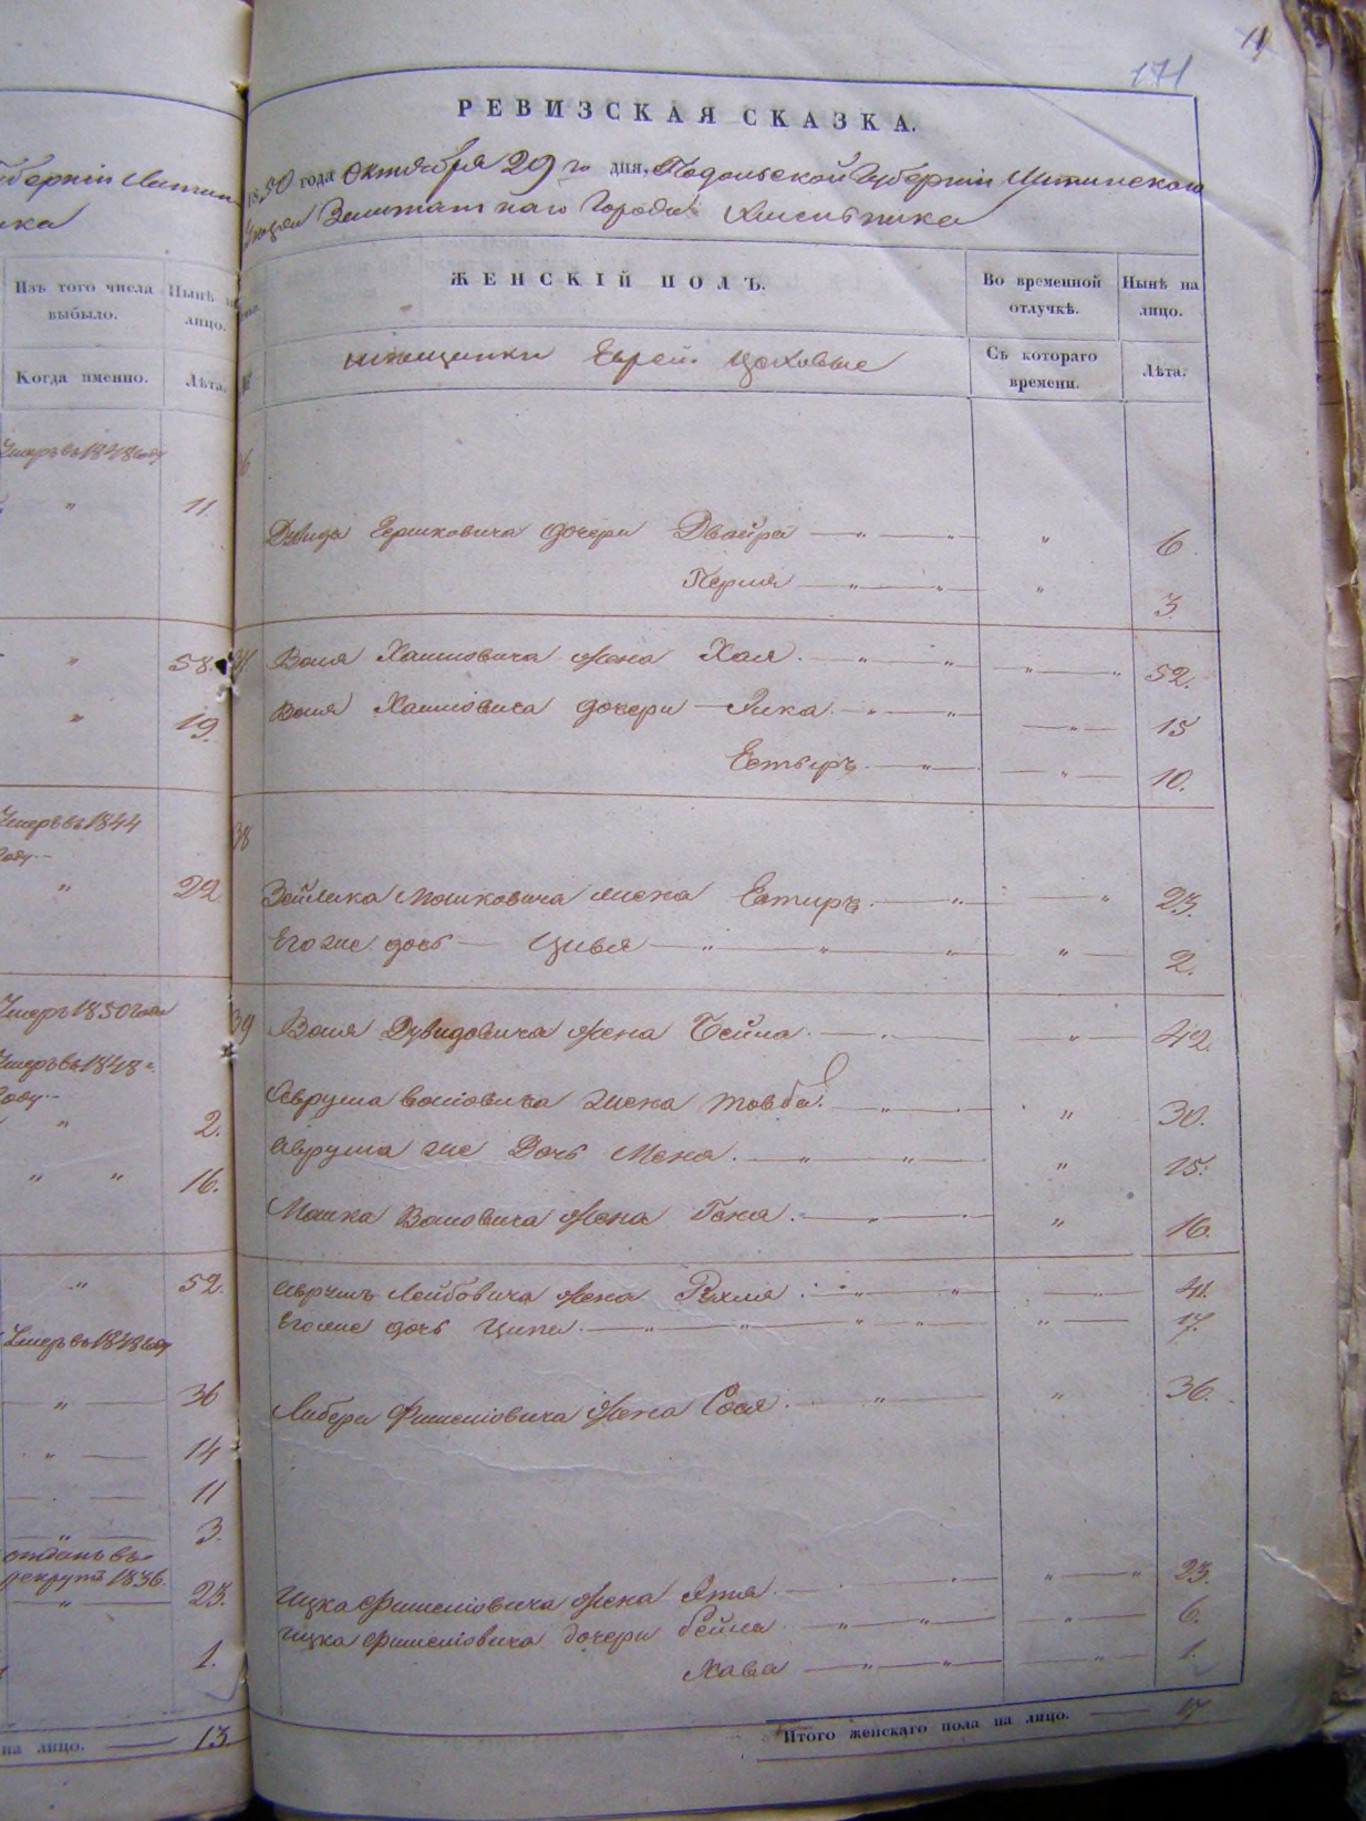 171
РЕВИЗСКАЯ СКАЗКА.
1850 года Октября 29 го дня, Подольской Губернии Литинского
Уезда Заштатнаго Города Хмельника
ЖЕНСКІЙ ПОЛЪ.
Во временной отлучкѣ.
Нынѣ на лицо.
мещанки Евреи Цеховые
Съ котораго времени.
Лѣта.
Дувида Гершковича дочери Двойра — „ — „ 6
Перля — „ — „ — „ 3
37 Воля Хаимовича жена Хая. — „ „ „ — „ 52.
Воля Хаимовича дочери — Рика. — „ — „ — „ — 15
Естьръ. — „ — „ — 10.
38
Зейлика Мошковича жена Естиръ. — „ — „ 23.
Его же дочь — Цивья — „ — „ — „ „ — 2.
39 Воля Дувидовича жена Бейла. — „ — 42.
Аврума Воліовича жена Товба. — „ — „ 30.
Аврума же Дочь Меня. — „ — „ — „ 15.
Мошка Воліовича жена Геня. — „ — „ 16.
Аврумъ Лейбовича жена Рухля. „ — „ — 41.
Его же дочь Ципа. — „ — „ — „ „ — „ — 17.
Либера Фишеліовича жена Сося. „ — „ 36.
Ицка Фишеліовича жена Этя. — „ — „ — „ 23.
Ицка Фишеліовича дочери Бейла — „ — „ — „ — 6.
Хава — „ — „ — „ — 1.
Итого женскаго пола на лицо. — 17
Губерніи Литин
ика
Изъ того числа выбыло.
Нынѣ на лицо.
Когда именно.
Лѣта.
Умеръ въ 1848 году
„ 11.
„ 58.
„ 19.
Умеръ въ 1844
году —
„ 22
Умеръ 1850 года
Умеръ въ 1848
году —
„ 2.
„ „ 16.
„ 52.
Умеръ въ 1848 году
„ — 36
„ — 14
— 11
— „ — 3.
отданъ въ
рекруты 1836.
„ — 23.
1.
на лицо. — 13.